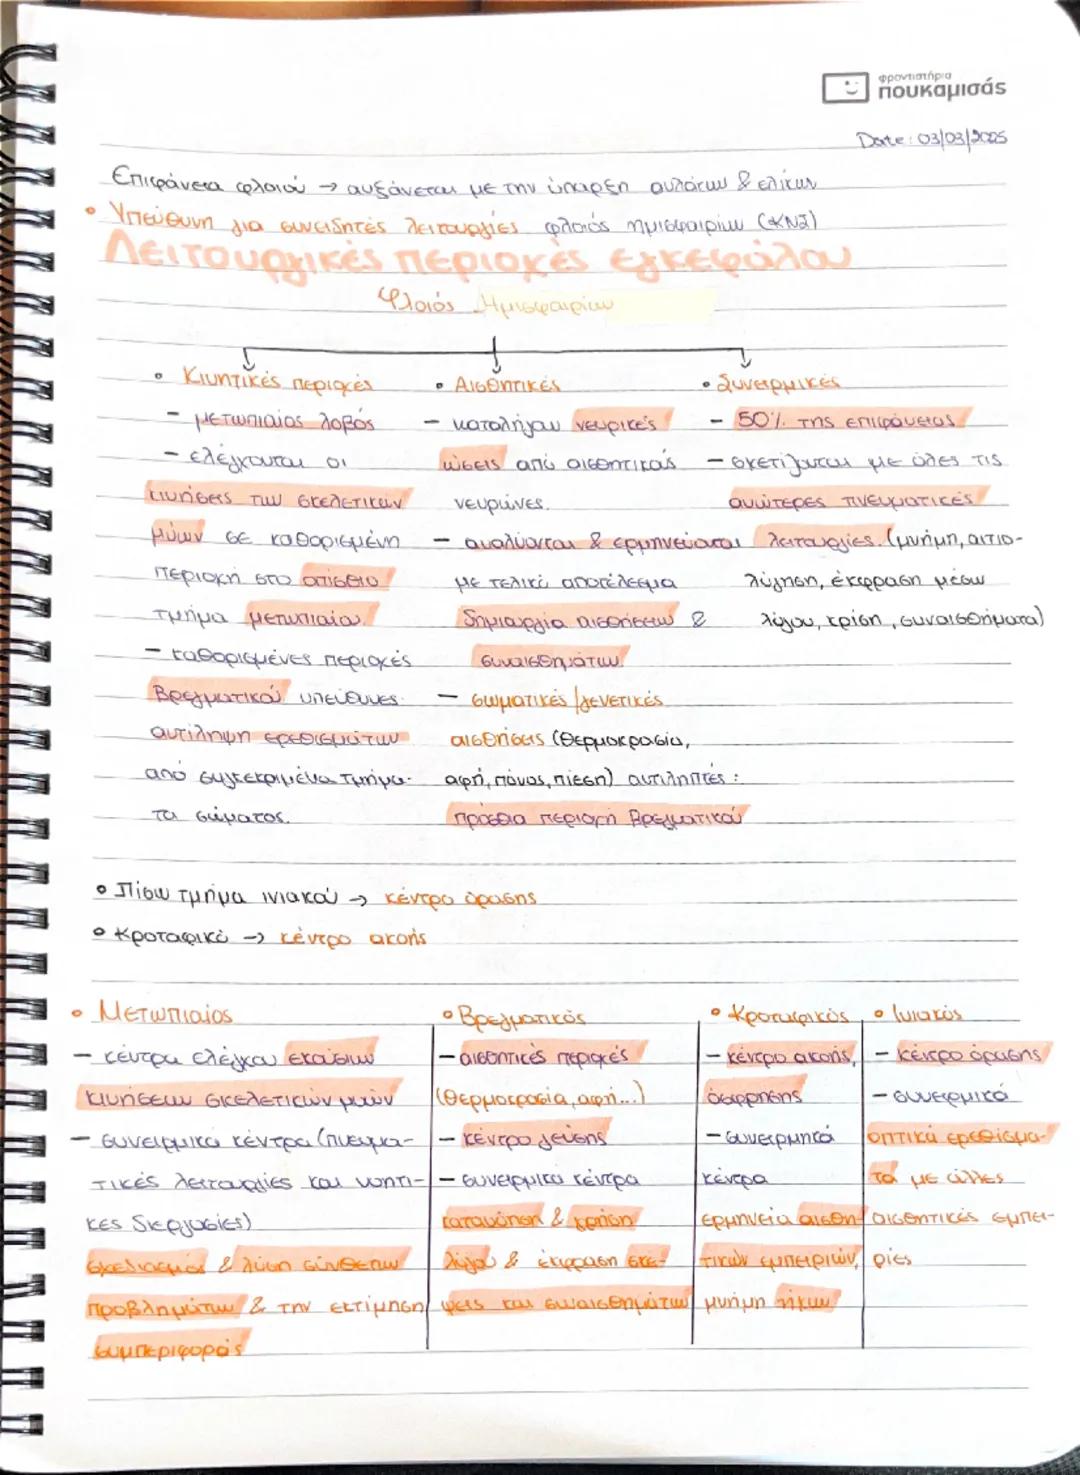 φροντιστήρια
πουκαμισάς
Date: 03/03/2025
Επιφάνεια φλοιού → αυξάνεται με την ύπαρξη αυλάκων & ελίκων
• Υπεύθυνη για συνειδητές λειτουργίες φλοιός ημισφαιρίων (ΚΝΣ)
Λειτουργικές περιοχές εγκεφάλου
Φλοιός Ημισφαιρίων
• Κινητικές περιοχές
- μετωπιαίος λοβός
- ελέγχονται οι
κινήσεις των σκελετικών
μυών σε καθορισμένη
περιοχή στο οπίσθιο
τμήμα μετωπιαίου.
- καθορισμένες περιοχές
Βρεγματικού υπεύθυνες
αντίληψη ερεθισμάτων
από συγκεκριμένα τμήμα-
τα σώματος.
• Αισθητικές
- καταλήγουν νευρικές
ώσεις από αισθητικούς
νευρώνες.
- αναλύονται & ερμηνεύονται
με τελικό αποτέλεσμα
δημιουργία αισθήσεων &
συναισθημάτων.
- σωματικές/γενετικές
αισθήσεις (θερμοκρασία,
αφή, πόνος, πίεση) αντιληπτές:
πρόσθια περιοχή Βρεγματικού
• Συνειρμικές
- 50% της επιφάνειας
- σχετίζονται με όλες τις
ανώτερες πνευματικές
λειτουργίες. (μνήμη, αιτιο-
λόγηση, έκφραση μέσω
λόγου, κρίση, συναισθήματα)
• Πίσω τμήμα ινιακού → κέντρο όρασης
• Κροταφικό → κέντρο ακοής
• Μετωπιαίος
- κέντρα ελέγχου εκούσιων
κινήσεων σκελετικών μυών
- συνειρμικα κέντρα (πνευμα-
τικές λειτουργίες και νοητι-
κες διεργασίες)
σχεδιασμός & λύση σύνθετων
προβλημάτων & την εκτίμηση
συμπεριφοράς
• Βρεγματικός
- αισθητικές περιοχές
(θερμοκρασία, αφή...)
- κέντρο γεύσης
- συνειρμικα κέντρα
κατανόηση & χρήση
λόγου & έκφραση σκέ-
ψεις και συναισθημάτων
• Κροταφικός
- κέντρο ακοής,
όσφρησης
- συνειρμητά
κέντρα
ερμηνεία αισθη-
τικών εμπειριών,
μνήμη ήχων
• Ινιακός
- κέντρο όρασης
- συνειρμικά
οπτικά ερεθίσμα-
τα με άλλες
αισθητικές εμπει-
ρίες